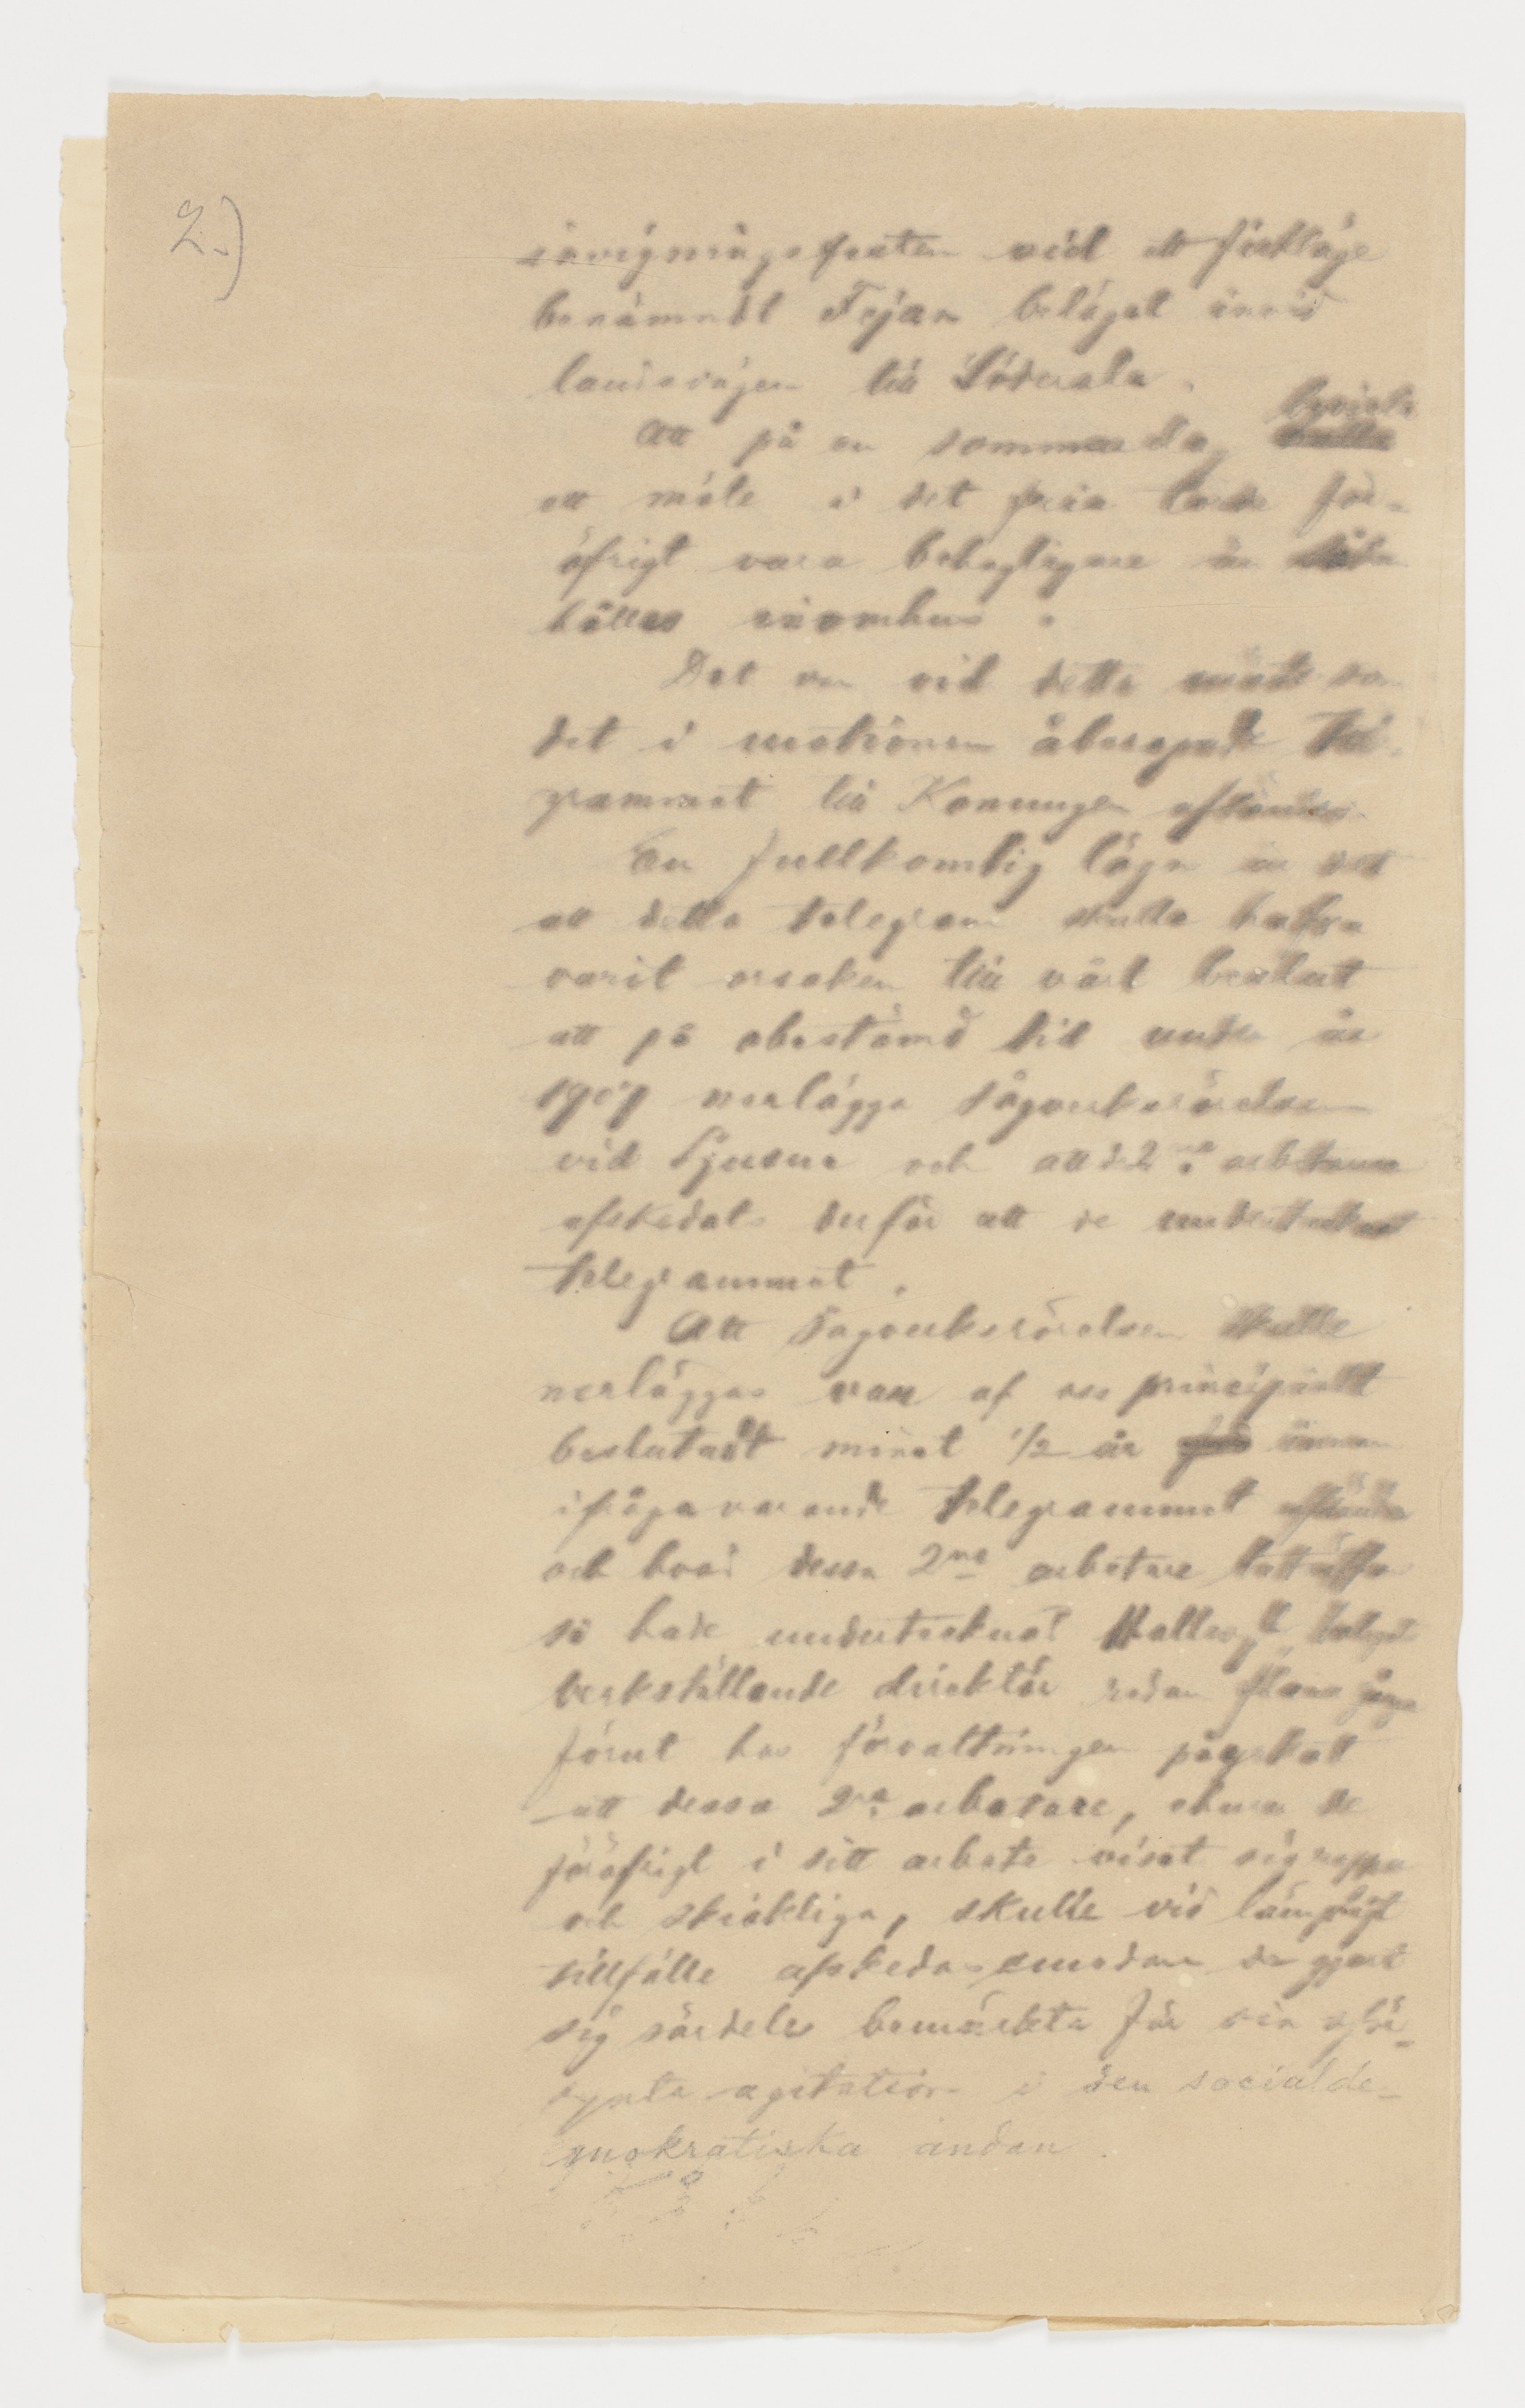 2.)
invigningsfesten vid ett fiskläge
benämndt Fejan beläget invid
landsvägen till Söderala.
Att på en sommardag bevista
ett möte i det fria torde för-
öfrigt vara behagligare än
hålles inomhus.
Det var vid detta möte som
det i motionen åberopade tele-
grammet till Konungen afsändes.
En fullkomlig lögn är det
att detta telegram skulle hafva
varit orsaken till vårt beslut
att på obestämd tid under år
1909 nerlägga sågverksrörelsen
vid Ljusne och att de 2ne arbetarne
afskedats derför att de undertecknat
telegrammet.
Att sågverksrörelsen skulle
nerläggas var af oss principiellt
beslutadt minst 1/2 år innan
ifrågavarande telegrammet afsändes
och hvad dessa 2ne arbetare
så hade undertecknad Hallwyl bolagets
verkställande direktör redan flera gånger
förut hos förvaltningen påyrkat
att dessa 2ne arbetare, ehuru de
föröfrigt i sitt arbete visat sig
och skickliga, skulle vid lämpligt
tillfälle afskedas emedan de gjort
sig särdeles bemärkta för sin oför-
synta agitation i den socialde-
mokratiska andan.